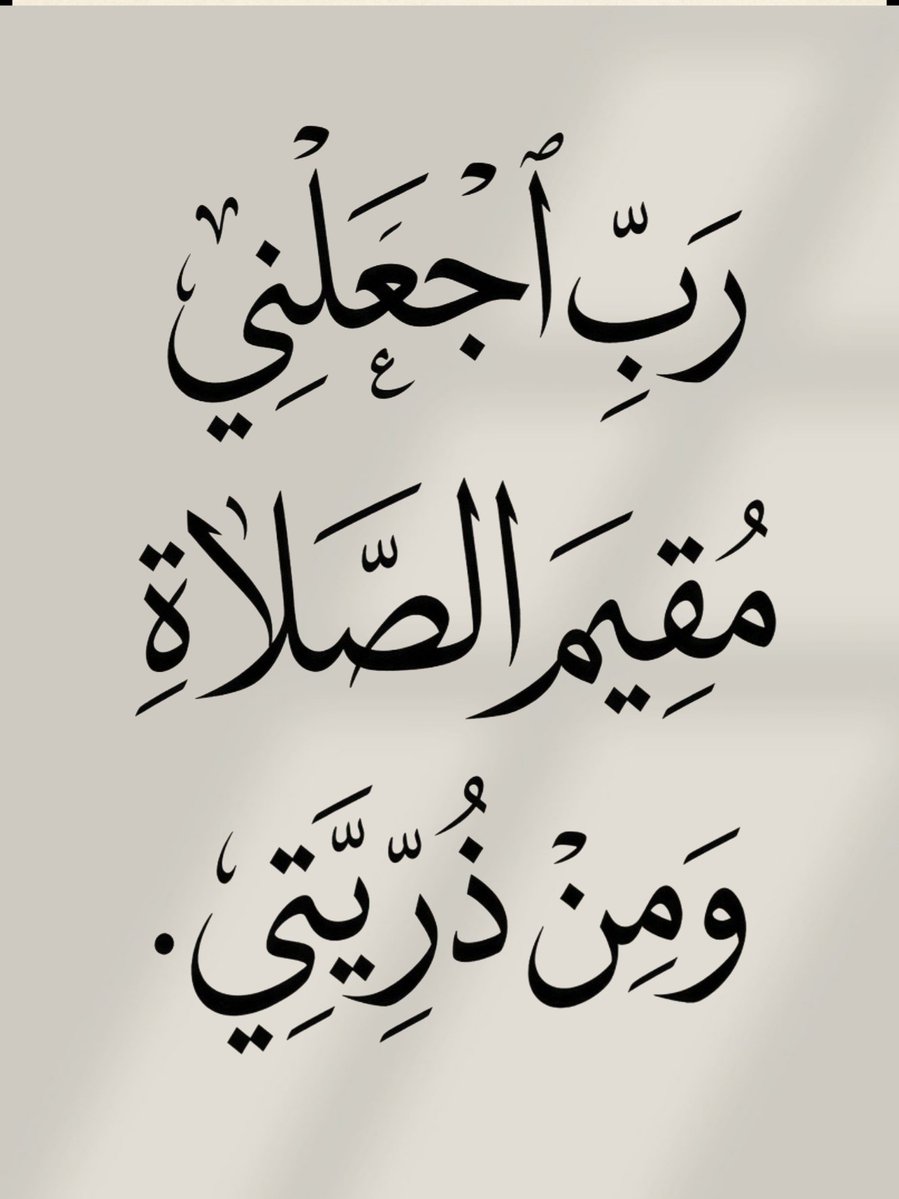 رَبِّ ٱجْعَلْنِي
مُقِيمَ الصَّلَاةِ
وَمِنْ ذُرِّيَّتِي.